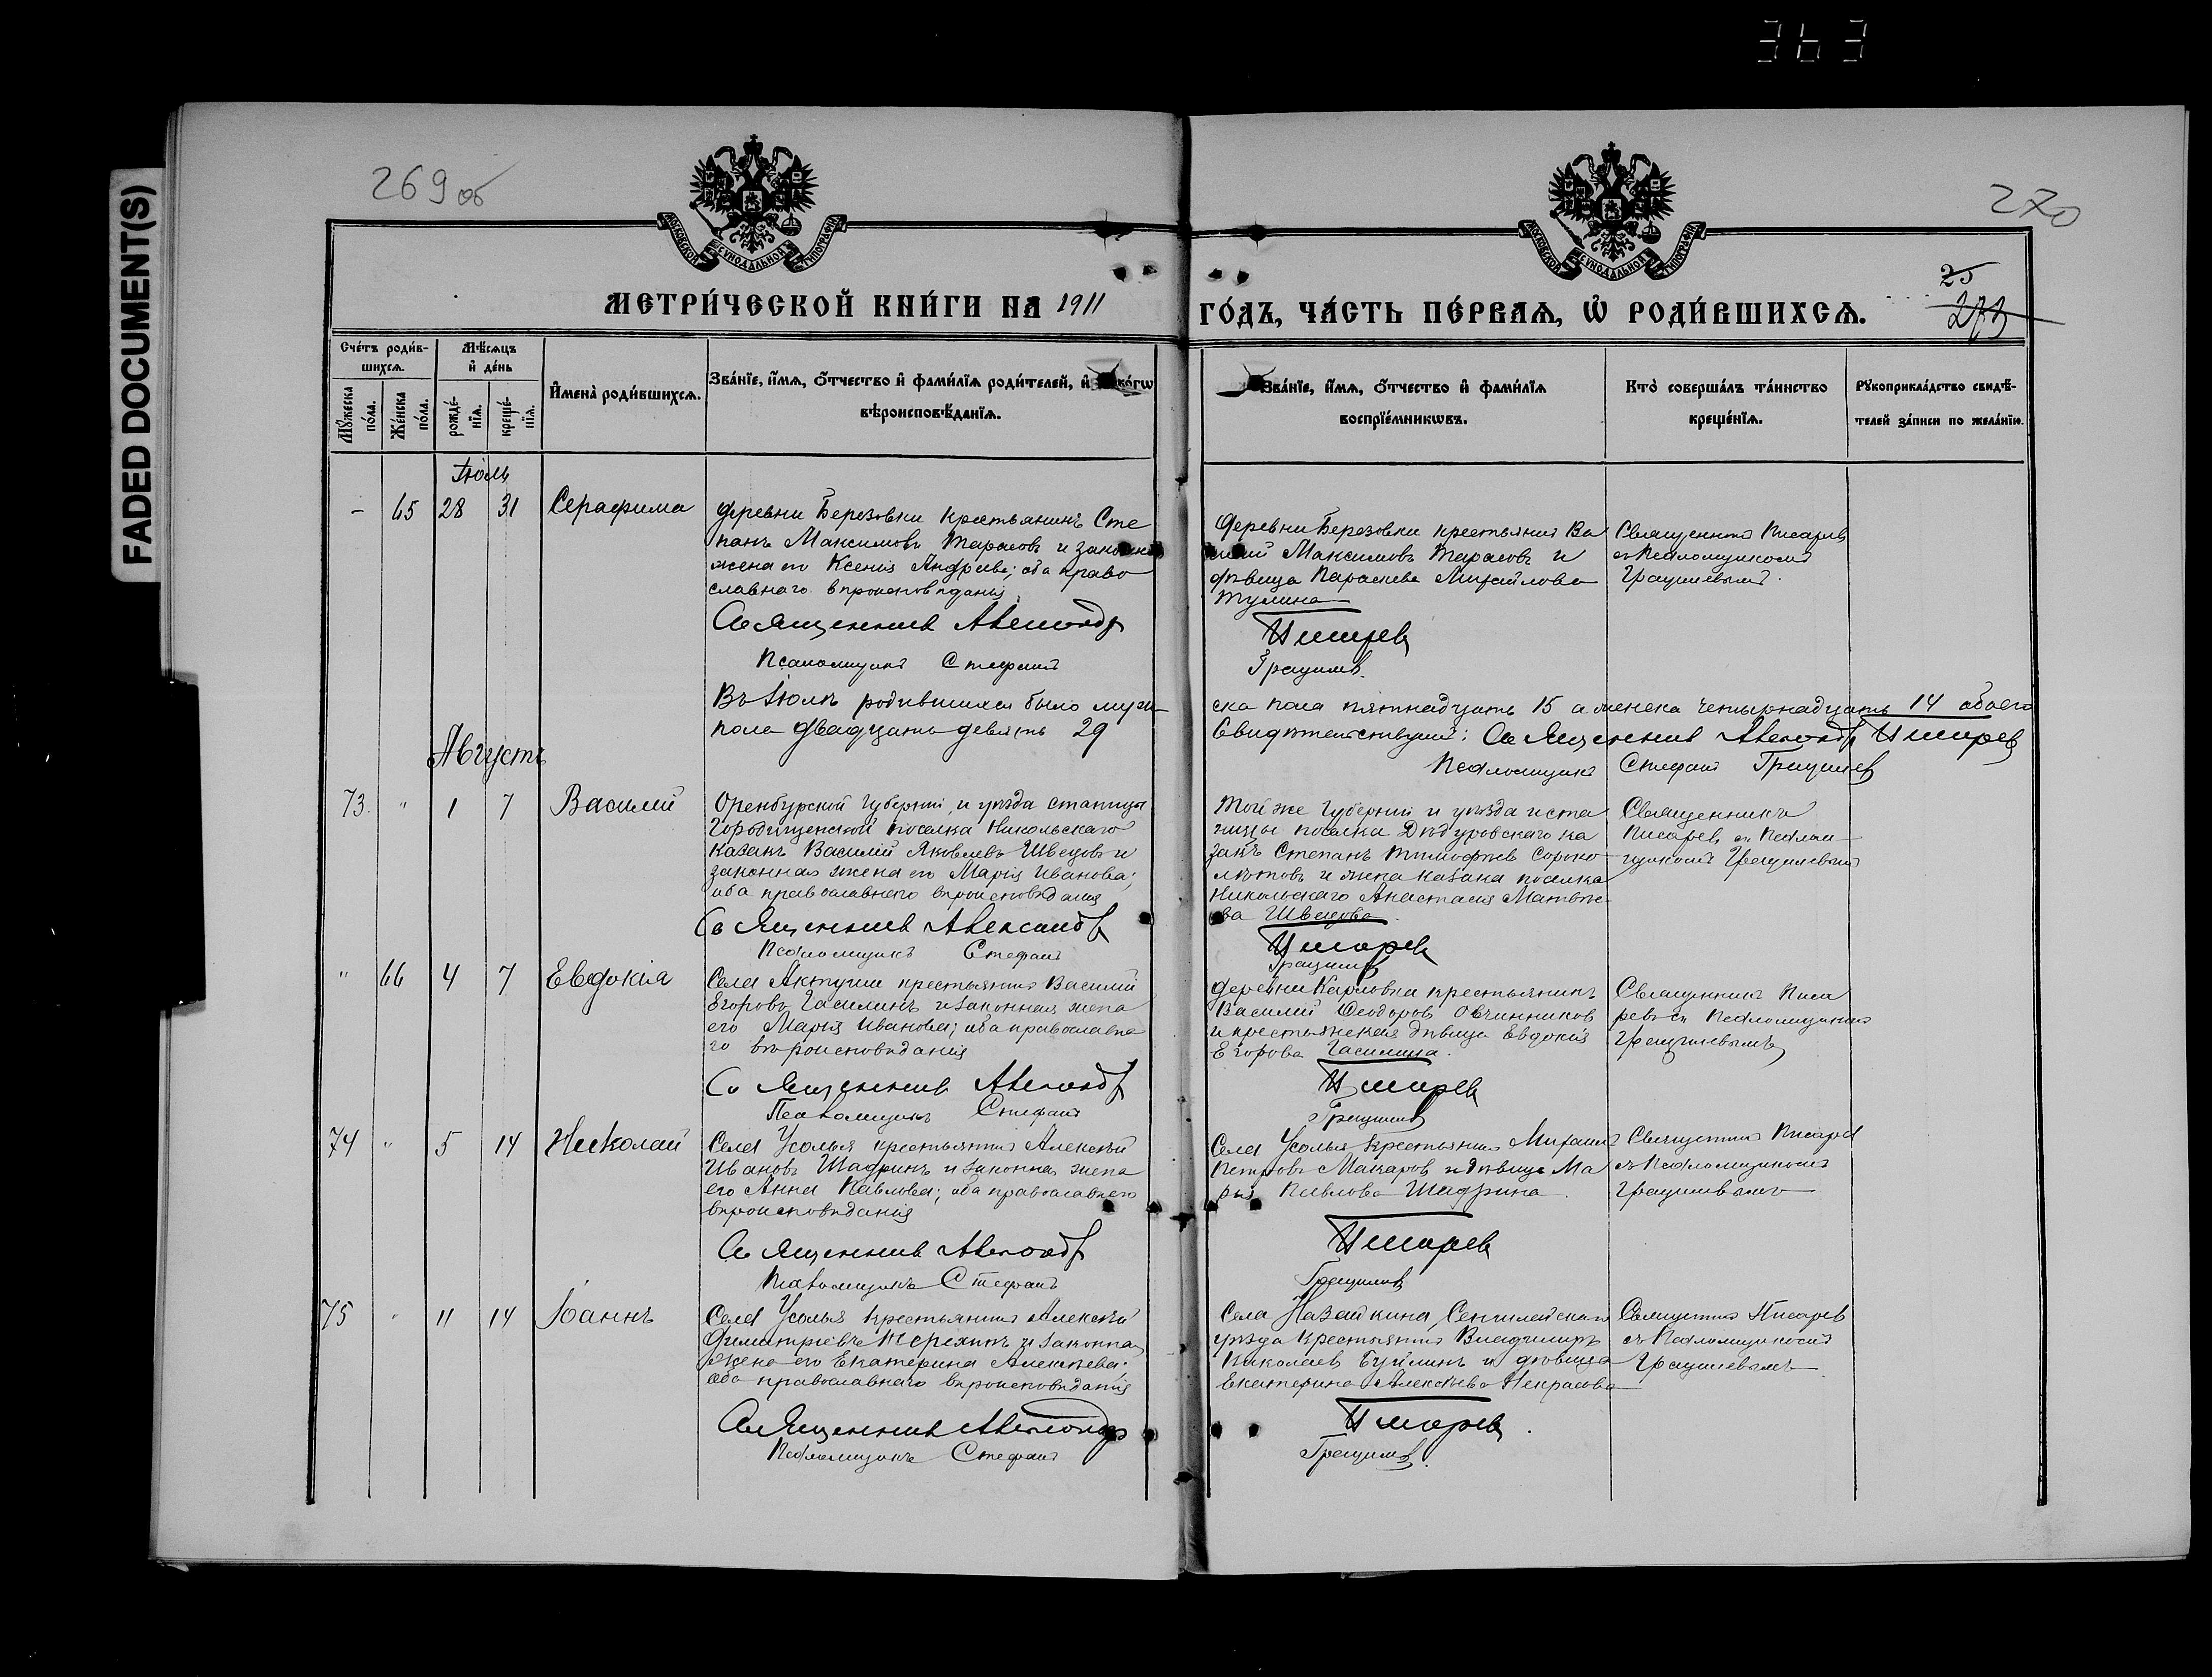 363
FADED DOCUMENT(S)
269 об
270
МОСКОВСКОЙ СѴНОДАЛЬНОЙ ТИПОГРАФІИ
МОСКОВСКОЙ СѴНОДАЛЬНОЙ ТИПОГРАФІИ
25
273
МЕТРИ́ЧЕСКОЙ КНИ́ГИ НА 1911
ГО́ДЪ, ЧА́СТЬ ПЕ́РВАѦ, Ѡ҆ РОДИ́ВШИХСѦ.
Сче́тъ роди́в-
шихсѧ.
Мѣ́сѧцъ
и҆ де́нь
Мꙋ́жеска по́ла.
Же́нска по́ла.
рожде́-нїѧ.
креще́-нїѧ.
И҆мена̀ роди́вшихсѧ.
Зва́нїе, и҆́мѧ, ѻ҆́тчество и҆ фами́лїѧ роди́телей, и҆ ко́гѡ
вѣроисповѣ́данїѧ.
Зва́нїе, и҆́мѧ, ѻ҆́тчество и҆ фами́лїѧ
воспрїе́мникѡвъ.
Кто̀ соверша́лъ та́инство
креще́нїѧ.
Рꙋкоприкла́дство свидѣ́-
телей за́писи по жела́нїю.
Іюль
- 65 28 31 Серафима
деревни Березовки крестьянинъ Сте
панъ Максимовъ Тарасовъ и законная
жена его Ксенія Андреева; оба право
славнаго вѣроисповѣданія
Священникъ Александр
Псаломщикъ Стефанъ
деревни Березовки крестьянинъ Ва
силій Максимовъ Тарасовъ и
дѣвица Параскева Михайлова
Тулина
Писарев
Грацилев
Священникъ Писаревъ
съ Псаломщикомъ
Грацилевымъ.
Въ Іюлѣ родившихся было муже
ска пола пятнадцать 15 а женска четырнадцать 14 обоего
пола двадцать девять 29
Свидѣтельствуютъ: Священникъ Александр Писарев
Псаломщикъ Стефанъ Грацилев
Августъ
73. " 1 7 Василій
Оренбургской Губерніи и уѣзда станицы
Городищенской поселка Никольскаго
казакъ Василій Яковлевъ Швецовъ и
законная жена его Марія Иванова;
оба православнаго вѣроисповѣданія
Священникъ Александр
Псаломщикъ Стефанъ
Той же Губерніи и уѣзда и ста
ницы поселка Дѣдуровскаго ка
закъ Степанъ Тимофѣевъ Сороко
лѣтовъ и жена казака поселка
Никольскаго Анастасія Матвѣе
ва Швецова.
Писарев
Грацилев
Священникъ
Писаревъ съ Псалом
щикомъ Грацилевымъ
" 66 4 7 Евдокія
Села Актуши крестьянинъ Василій
Егоровъ Гасилинъ и законная жена
его Марія Иванова; оба православна
го вѣроисповѣданія
Священникъ Александр
Псаломщикъ Стефанъ
деревни Карловки крестьянинъ
Василій Ѳеодоров Овчинников
и крестьянская дѣвица Евдокія
Егорова Гасилина.
Писарев
Грацилев
Священникъ Писа
ревъ съ Псаломщикомъ
Грацилевымъ
74 " 5 14 Николай
Села Усолья крестьянинъ Алексѣй
Ивановъ Шадринъ и законная жена
его Анна Павлова; оба православнаго
вѣроисповѣданія
Священникъ Александр
Псаломщикъ Стефанъ
Села Усолья крестьянинъ Михаилъ
Петровъ Макаров и дѣвица Ма
рія Павлова Шадрина.
Писарев
Грацилев
Священникъ Писарев
съ Псаломщикомъ
Грацилевымъ
75 " 11 14 Іоаннъ
Села Усолья крестьянинъ Алексѣй
Димитріевъ Терехинъ и законная
жена его Екатерина Алексѣева;
оба православнаго вѣроисповѣданія
Священникъ Александр
Псаломщикъ Стефанъ
Села Назайкина Сенгилейскаго
уѣзда крестьянинъ Владимиръ
Николаев и дѣвица
Екатерина Алексѣева Некрасова
Писарев.
Грацилев.
Священникъ Писарев
съ Псаломщикомъ
Грацилевымъ